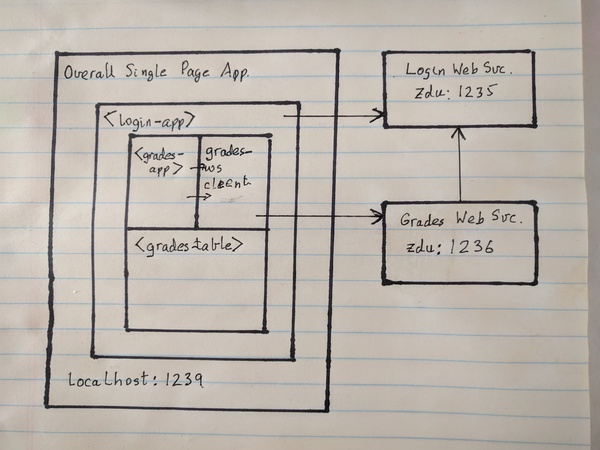 Overall Single Page App.
<login-app>
<grades-
app>
grades-
ws
client
<grades-table>
localhost: 1239
Login Web Svc.
zdu: 1235
Grades Web Svc.
zdu: 1236